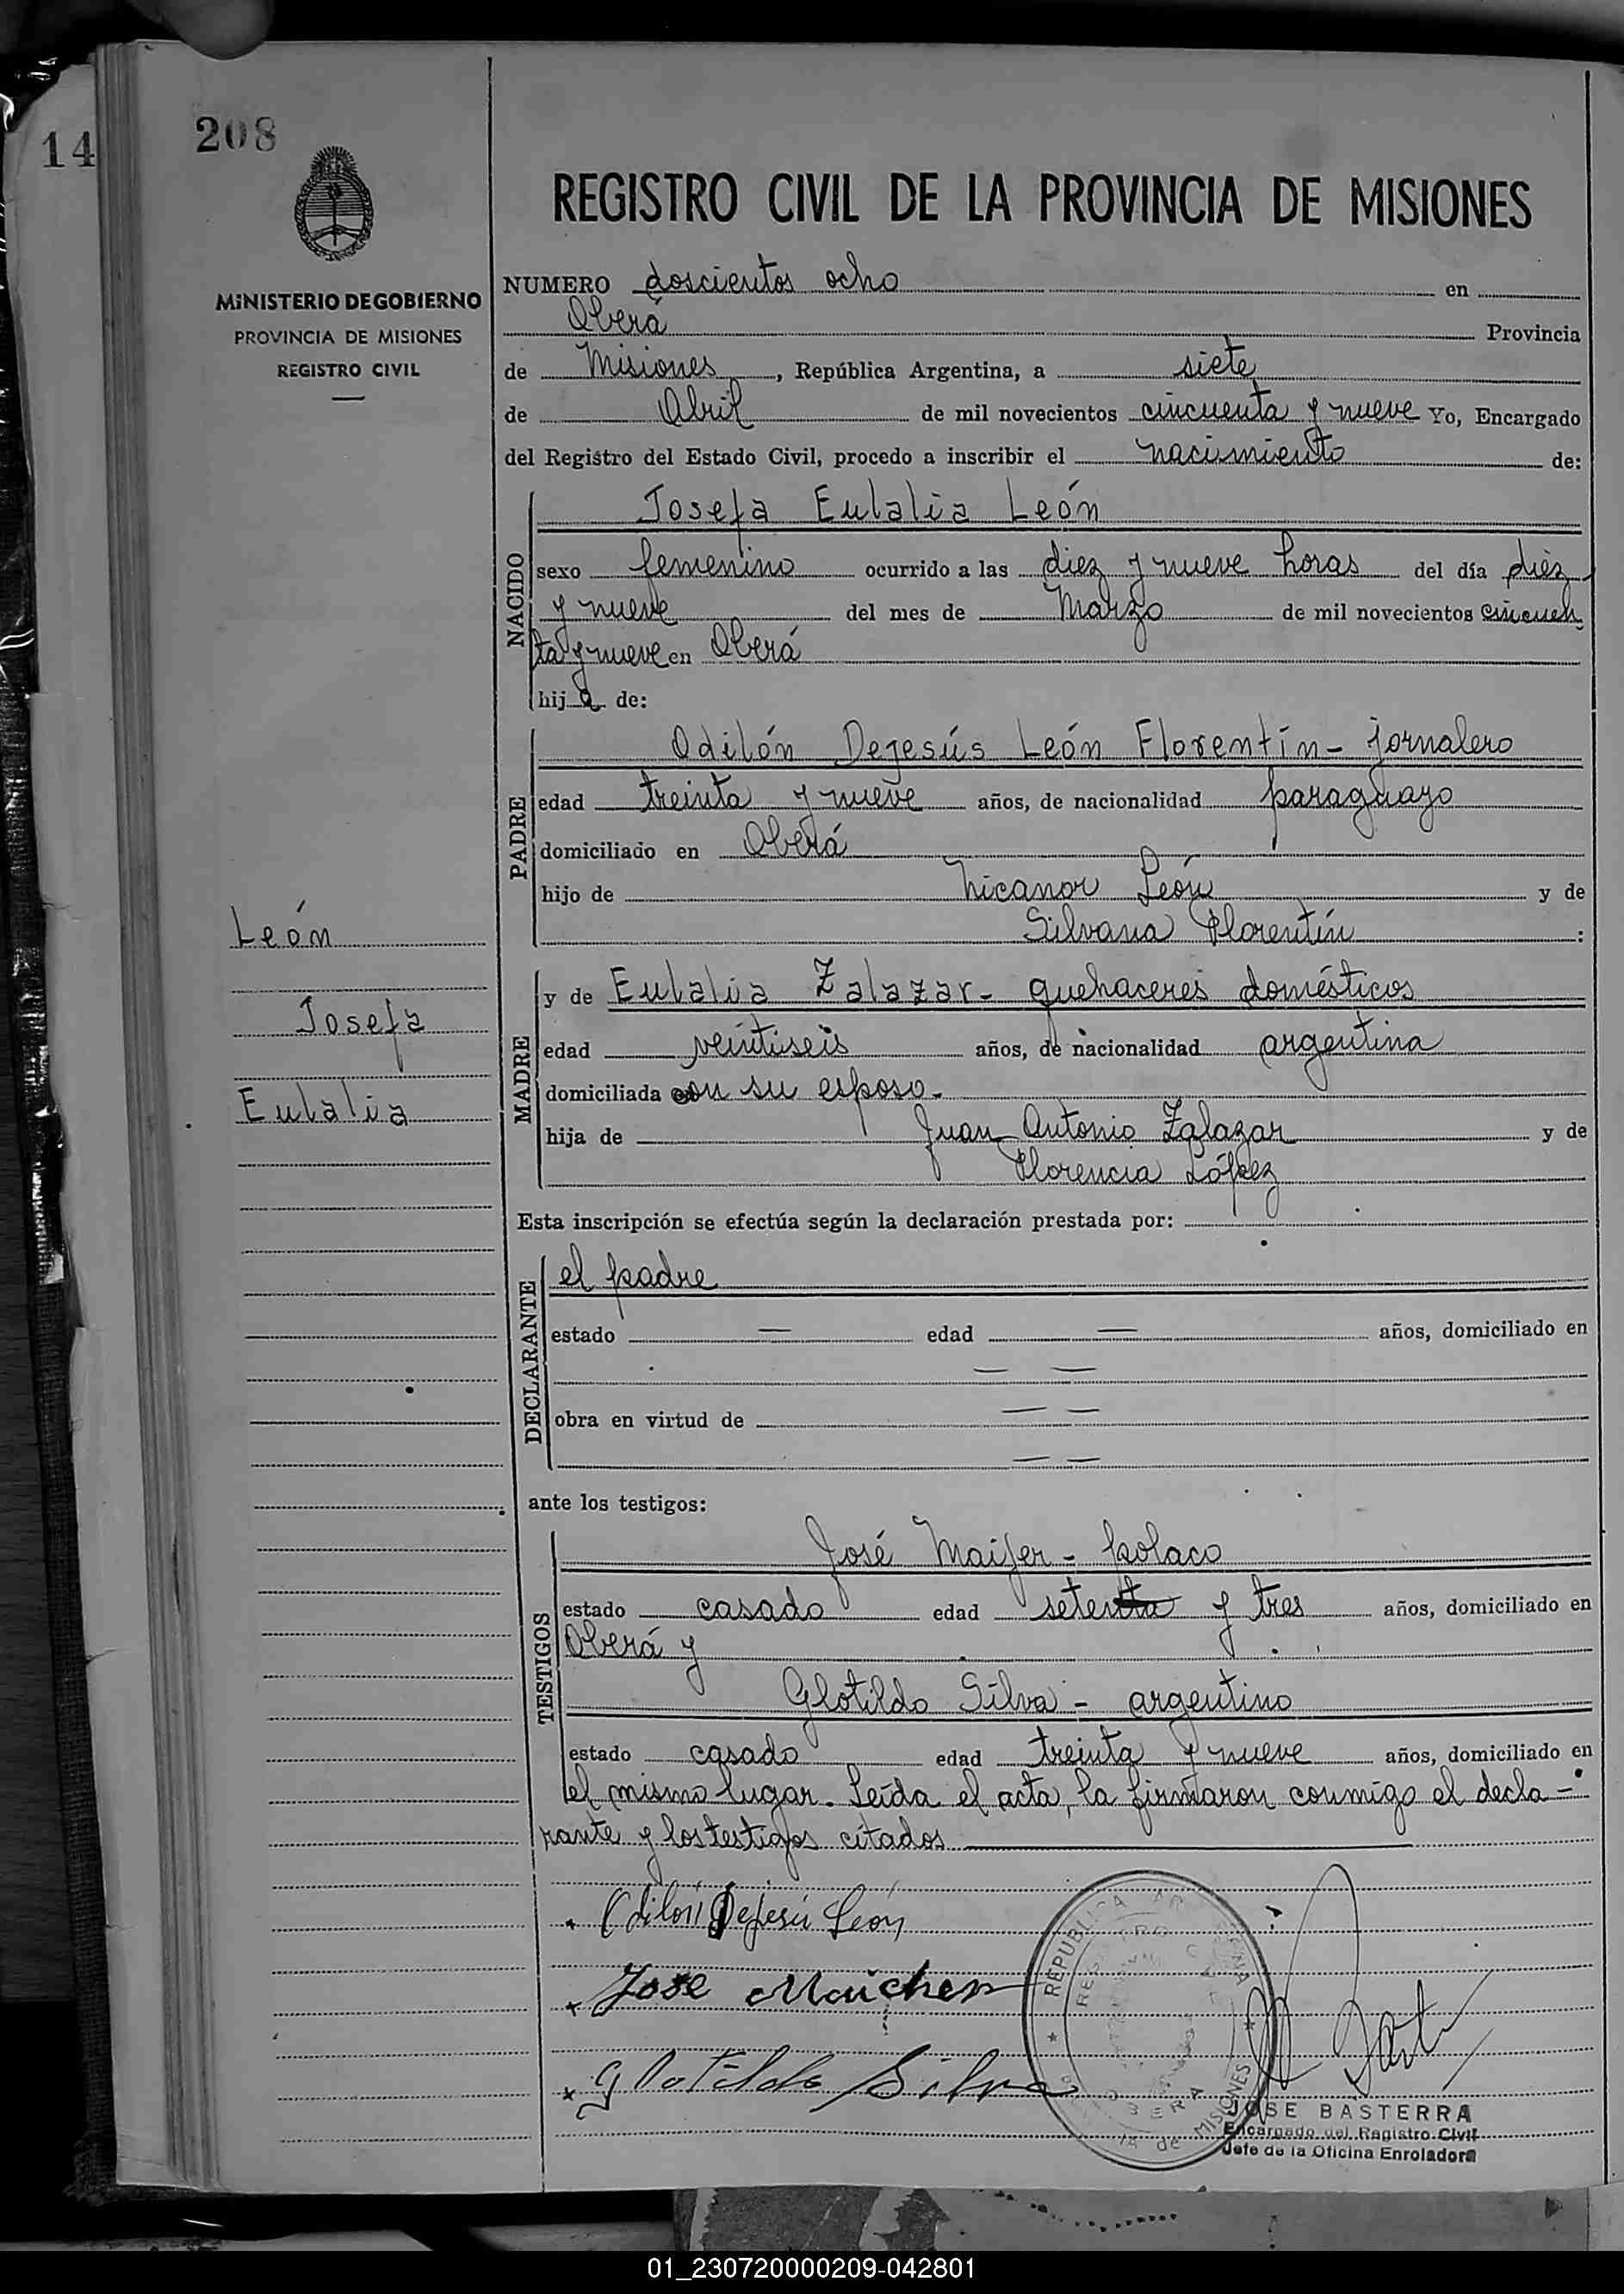 14
208
MINISTERIO DE GOBIERNO
PROVINCIA DE MISIONES
REGISTRO CIVIL
León
Josefa
Eulalia
REGISTRO CIVIL DE LA PROVINCIA DE MISIONES
NUMERO doscientos ocho en
Oberá Provincia
de Misiones, República Argentina, a siete
de Abril de mil novecientos cincuenta y nueve Yo, Encargado
del Registro del Estado Civil, procedo a inscribir el nacimiento de:
NACIDO
Josefa Eulalia León
sexo femenino ocurrido a las diez y nueve horas del día diez
y nueve del mes de Marzo de mil novecientos cincuen
ta y nueve en Oberá
hija de:
PADRE
Odilón Dejesús León Florentín - jornalero
edad treinta y nueve años, de nacionalidad paraguayo
domiciliado en Oberá
hijo de Nicanor León y de
Silvana Florentín :
MADRE
y de Eulalia Zalazar - quehaceres domésticos
edad veintiseis años, de nacionalidad argentina
domiciliada con su esposo.
hija de Juan Antonio Zalazar y de
Florencia López
Esta inscripción se efectúa según la declaración prestada por:
DECLARANTE
el padre
estado — edad — años, domiciliado en
— —
obra en virtud de — —
— —
ante los testigos:
TESTIGOS
José Maijer - polaco
estado casado edad setenta y tres años, domiciliado en
Oberá y
Glotildo Silva - argentino
estado casado edad treinta y nueve años, domiciliado en
el mismo lugar. Leída el acta, la firmaron conmigo el decla-
rante y los testigos citados
Odilón Dejesú León
Jose Maicher
Glotildo Silva
REPUBLICA ARGENTINA
OBERA
de MISIONES
JOSE BASTERRA
Encargado del Registro Civil
Jefe de la Oficina Enroladora
01_230720000209-042801